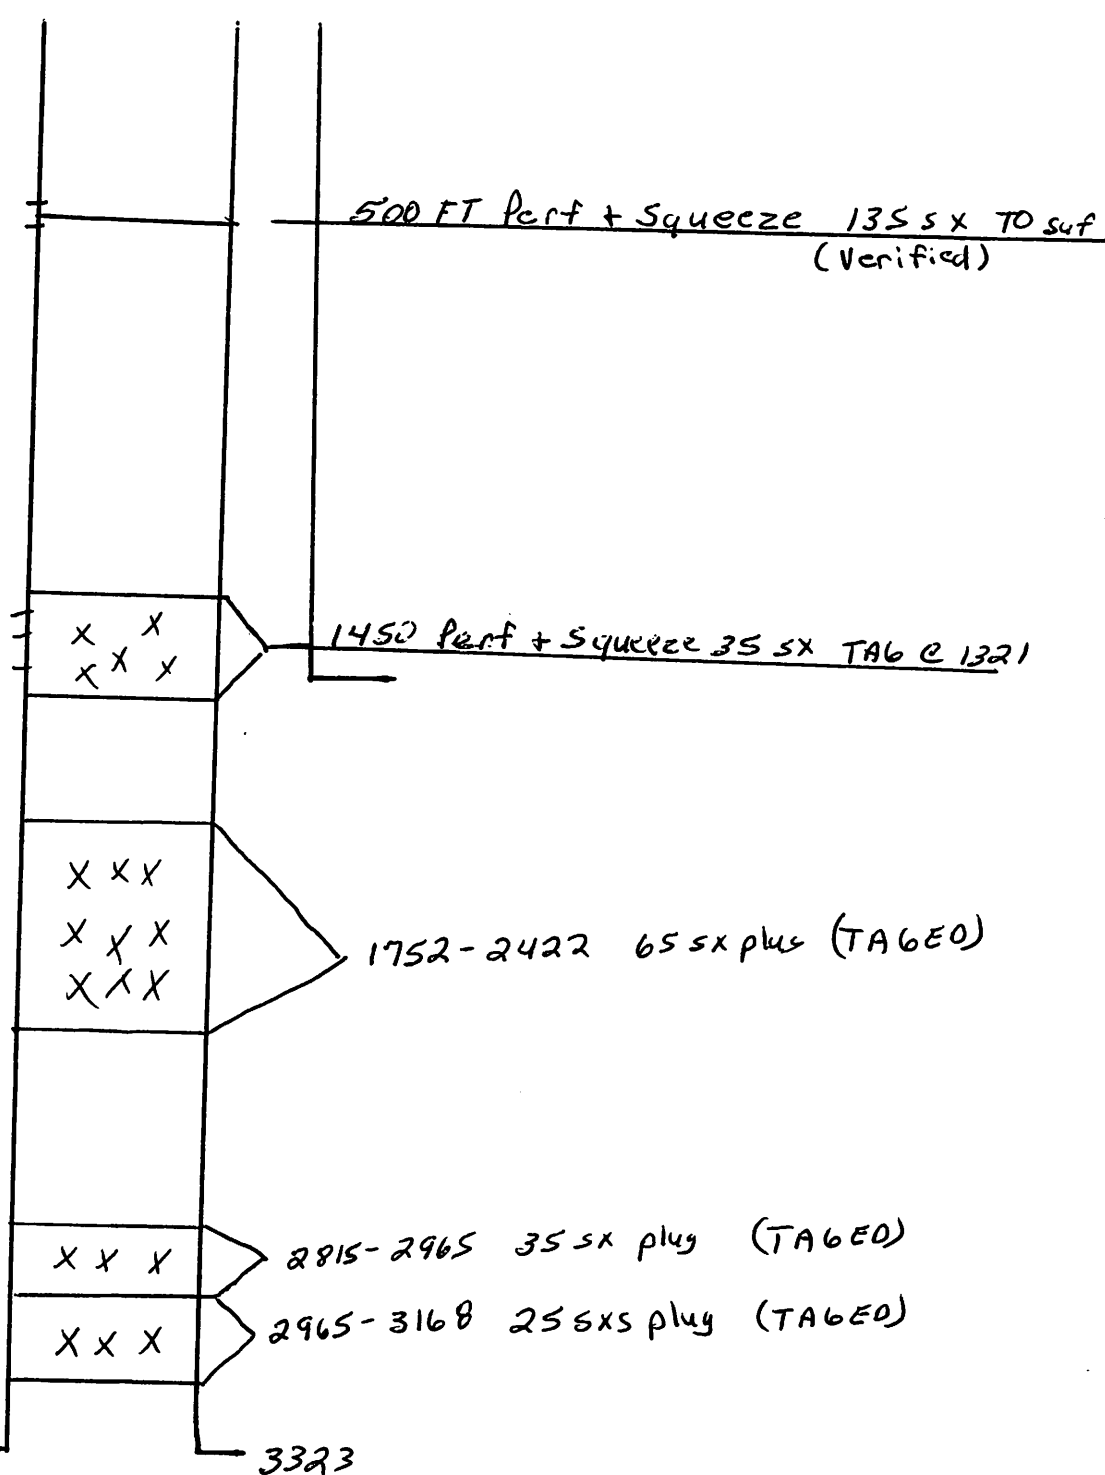 500 FT Perf + Squeeze 135 sx TO surf
(Verified)
1450 Perf + Squeeze 35 sx TAG @ 1321
1752-2422 65 sx plug (TAGED)
2815-2965 35 sx plug (TAGED)
2965-3168 25 sxs plug (TAGED)
3323